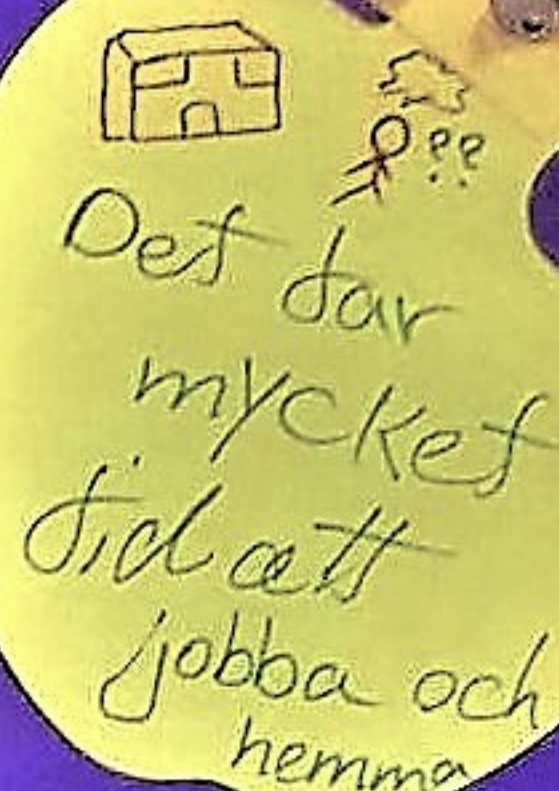 ??
Det tar
mycket
tid att
jobba och
hemma